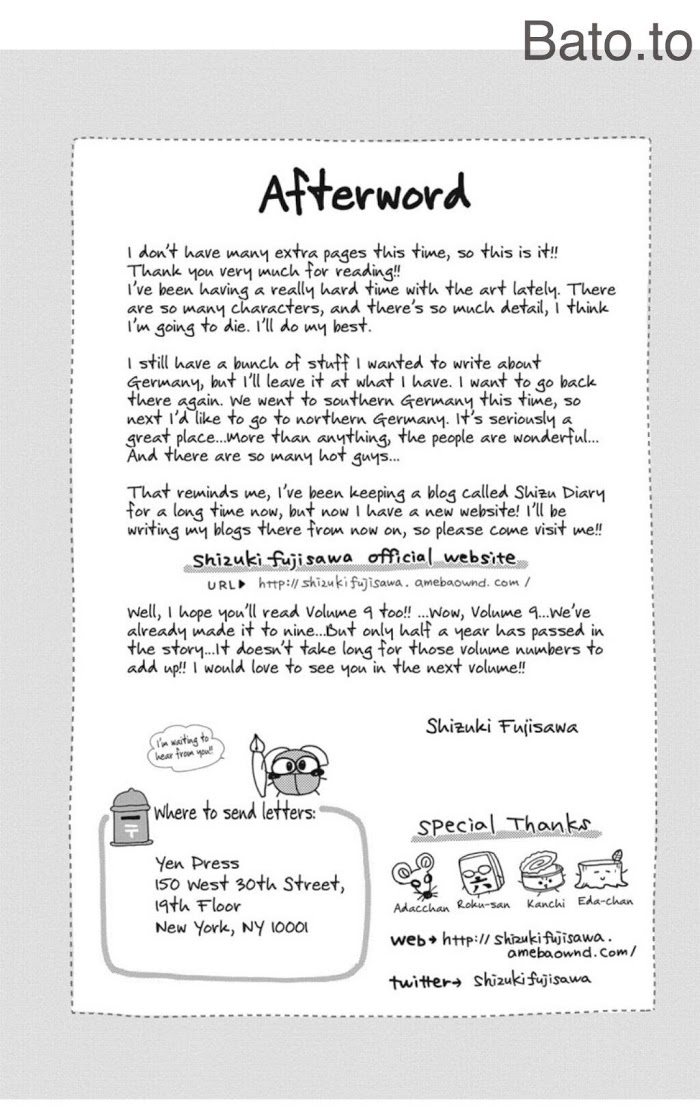 Bato.to
Afterword
I don't have many extra pages this time, so this is it!!
Thank you very much for reading!!
I've been having a really hard time with the art lately. There
are so many characters, and there's so much detail, I think
I'm going to die. I'll do my best.
I still have a bunch of stuff I wanted to write about
Germany, but I'll leave it at what I have. I want to go back
there again. We went to southern Germany this time, so
next I'd like to go to northern Germany. It's seriously a
great place...More than anything, the people are wonderful...
And there are so many hot guys...
That reminds me, I've been keeping a blog called Shizu Diary
for a long time now, but now I have a new website! I'll be
writing my blogs there from now on, so please come visit me!!
Shizuki Fujisawa official website
URL▶ http://shizukifujisawa.amebaownd.com/
Well, I hope you'll read Volume 9 too!! ...Wow, Volume 9...We've
already made it to nine...But only half a year has passed in
the story...It doesn't take long for those volume numbers to
add up!! I would love to see you in the next volume!!
Shizuki Fujisawa
I'm waiting to
hear from you!!
〒
Where to send letters:
Yen Press
150 West 30th Street,
19th Floor
New York, NY 10001
Special Thanks
六
Adacchan Roku-san Kanchi Eda-chan
web→http://shizukifujisawa.
amebaownd.com/
twitter→ shizukifujisawa